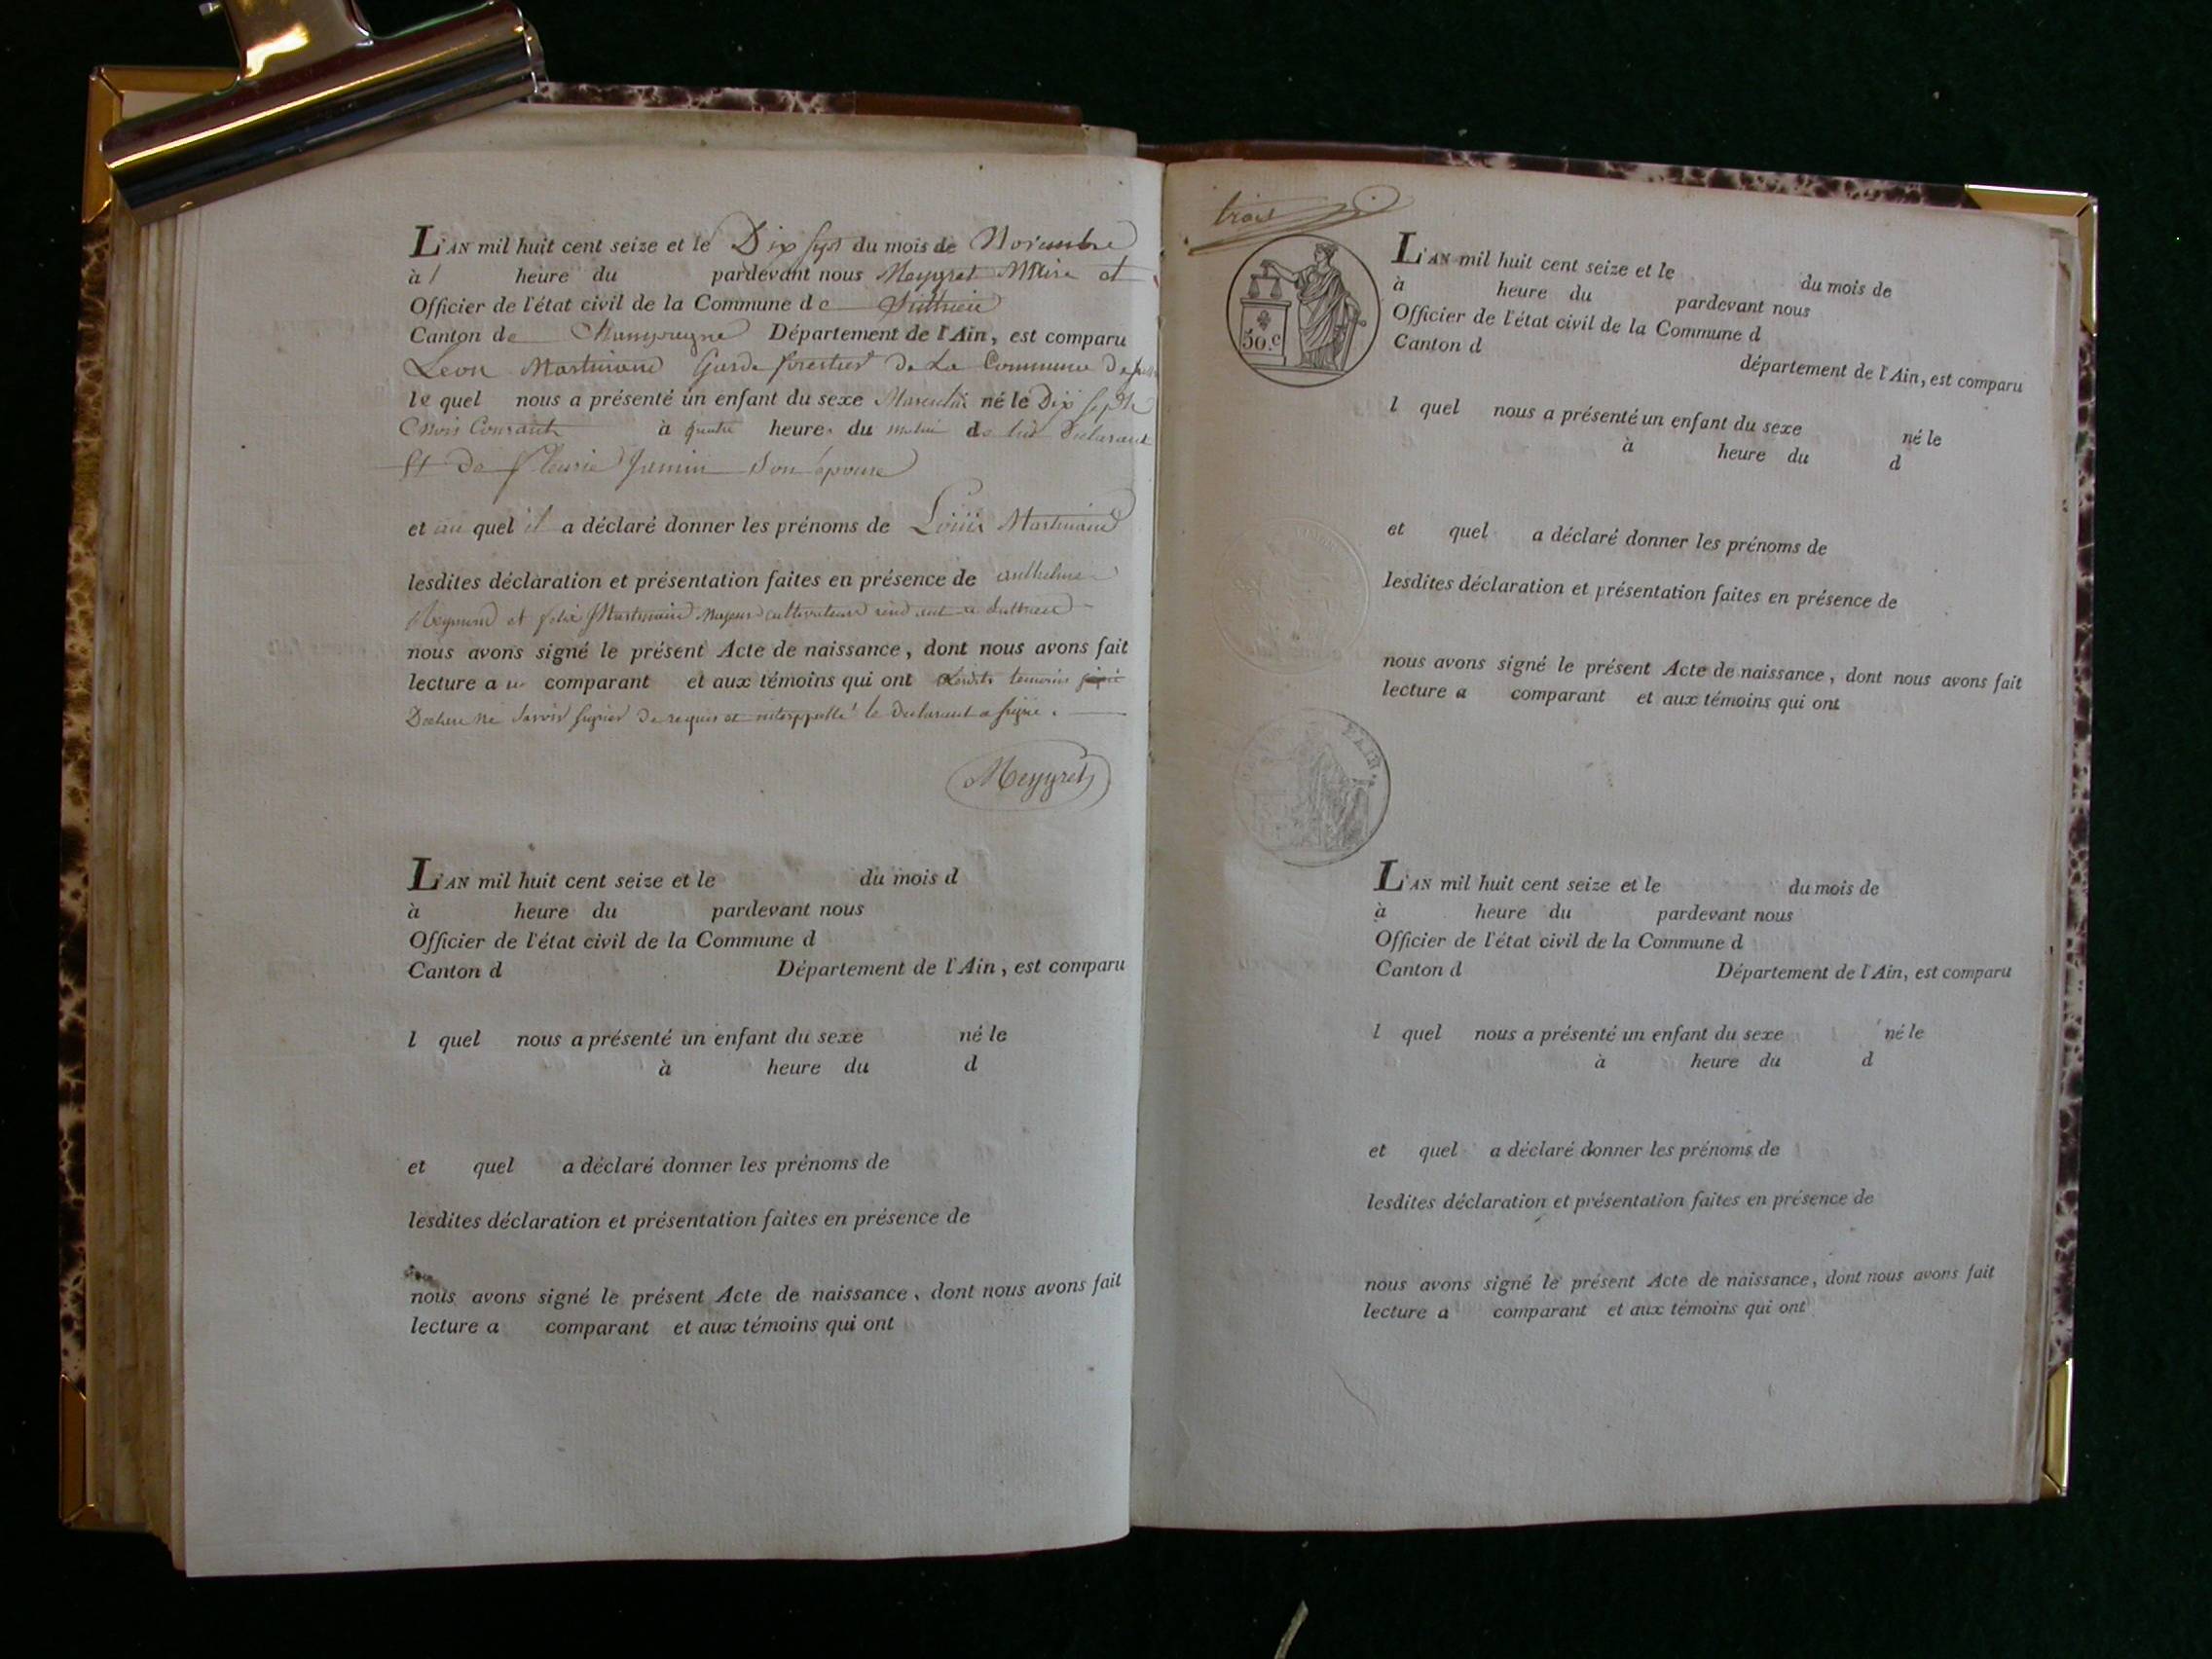 L'AN mil huit cent seize et le Dix sept du mois de Novembre
à heure du pardevant nous Meygret Maire et
Officier de l'état civil de la Commune de Sutrieu
Canton de Champagne Département de l'Ain, est comparu
Leon Martinand Garde forestier de La Commune de
le quel nous a présenté un enfant du sexe Masculin né le Dix Sept
Mois Courant à quatre heures du matin de lui Declarant
Et de fleurie Jumin Son Epouse
et au quel il a déclaré donner les prénoms de Louis Martinand
lesdites déclaration et présentation faites en présence de anthelme
et felix Martinand Majeurs cultivateurs a Sutrieu
nous avons signé le présent Acte de naissance, dont nous avons fait
lecture au comparant et aux témoins qui ont Lesdits temoins
Declare ne Savoir signer de requis et interppellé le Declarant a signé.
Meygret
L'AN mil huit cent seize et le du mois d
à heure du pardevant nous
Officier de l'état civil de la Commune d
Canton d Département de l'Ain, est comparu
l quel nous a présenté un enfant du sexe né le
à heure du d
et quel a déclaré donner les prénoms de
lesdites déclaration et présentation faites en présence de
nous avons signé le présent Acte de naissance, dont nous avons fait
lecture a comparant et aux témoins qui ont
trois
50.c
L'AN mil huit cent seize et le du mois de
à heure du pardevant nous
Officier de l'état civil de la Commune d
Canton d département de l'Ain, est comparu
l quel nous a présenté un enfant du sexe né le
à heure du d
et quel a déclaré donner les prénoms de
lesdites déclaration et présentation faites en présence de
nous avons signé le présent Acte de naissance, dont nous avons fait
lecture a comparant et aux témoins qui ont
L'AN mil huit cent seize et le du mois de
à heure du pardevant nous
Officier de l'état civil de la Commune d
Canton d Département de l'Ain, est comparu
l quel nous a présenté un enfant du sexe né le
à heure du d
et quel a déclaré donner les prénoms de
lesdites déclaration et présentation faites en présence de
nous avons signé le présent Acte de naissance, dont nous avons fait
lecture a comparant et aux témoins qui ont